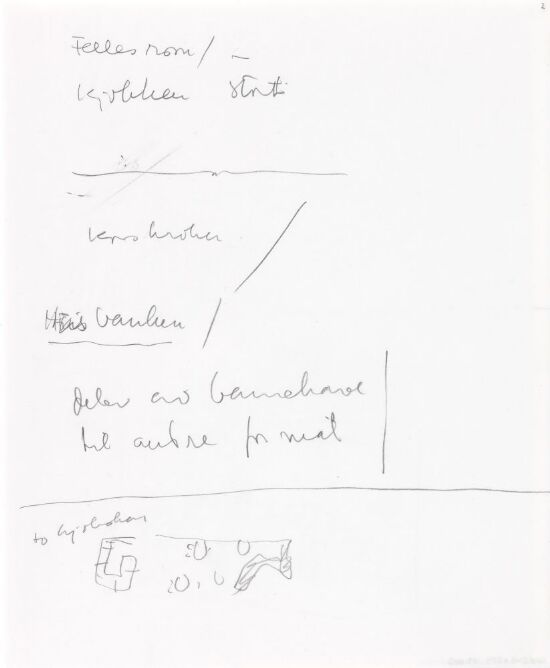 2
Fellesrom / –
Kjøkken stort
Husbanken /
deler av barnehave
til andre formål
to kjøkken